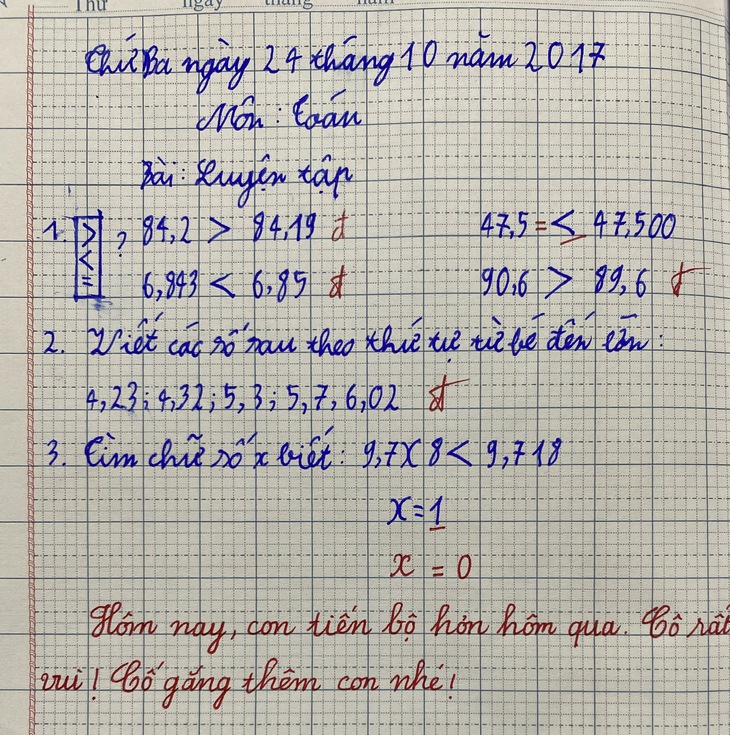 Thứ ngày tháng năm
Thứ Ba ngày 24 tháng 10 năm 2017
Môn : Toán
Bài : Luyện tập
1. > < = ? 84,2 > 84,19 đ 47,5 = < 47,500
6,843 < 6,85 đ 90,6 > 89,6 đ
2. Viết các số sau theo thứ tự từ bé đến lớn :
4,23 ; 4,32 ; 5,3 ; 5,7 , 6,02 đ
3. Tìm chữ số x biết : 9,7x8 < 9,718
x = 1
x = 0
Hôm nay, con tiến bộ hơn hôm qua. Cô rất
vui ! Cố gắng thêm con nhé !